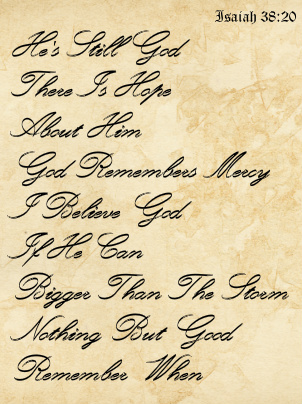 Isaiah 38:20
He's Still God
There Is Hope
About Him
God Remembers Mercy
I Believe God
If He Can
Bigger Than The Storm
Nothing But Good
Remember When